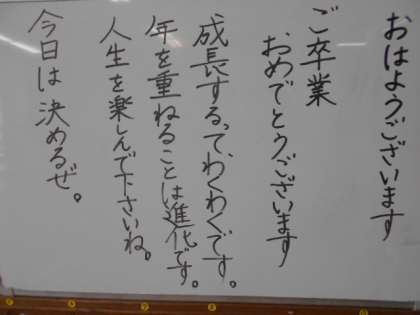 おはようございます
ご卒業
おめでとうございます
成長するって、わくわくです。
年を重ねることは進化です。
人生を楽しんで下さいね。
今日は決めるぜ。